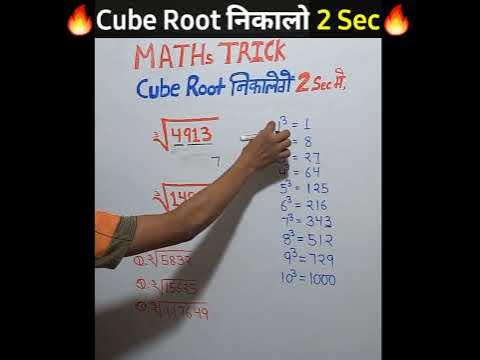 🔥Cube Root निकालो 2 Sec🔥
MATHs TRICK
Cube Root निकालेगें 2 Sec में,
∛4913
7
1³ = 1
= 8
= 27
4³ = 64
5³ = 125
6³ = 216
7³ = 343
8³ = 512
9³ = 729
10³ = 1000
①. ∛5832
②. ∛15625
③. ∛117649